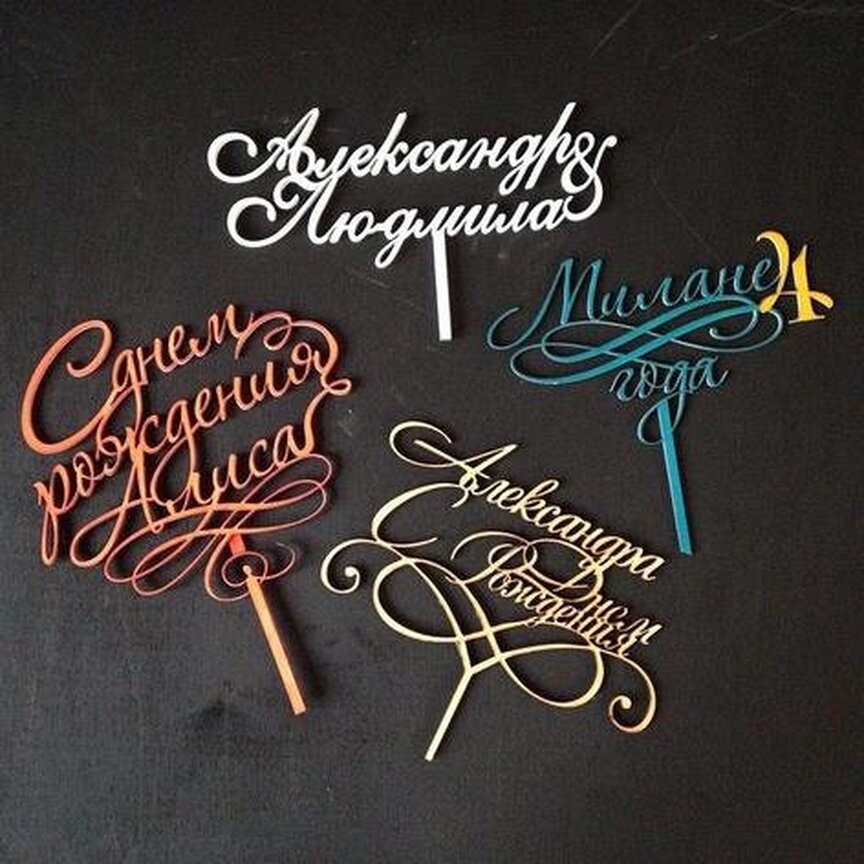 Александр &
Людмила
Милане 4
года
С днем
рождения
Алиса
Александра
С Днем
Рождения